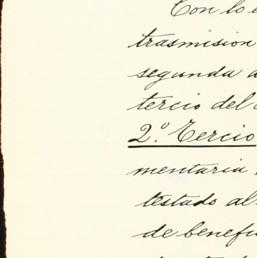 Con lo e
trasmision
segunda a
tercio del
2º. Tercio
mentaria
testado al
de benefi